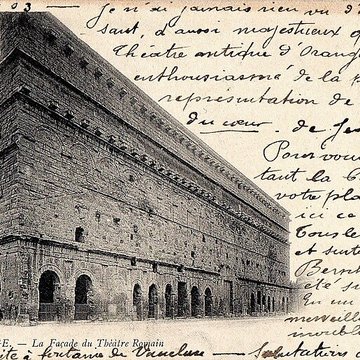 03 — Je n'ai jamais rien vu d'
sant, d'aussi majestueux q
Théâtre antique d'Orang
enthousiasmé de la p
représentation de
du cœur. de Je
Pour vous
tant la C
votre pla
ici ce
Tous le
et surto
Bern
été su
En un
merveille
inoubl
GE. — La Façade du Théâtre Romain
ite à fontaine de Vaucluse — salutations